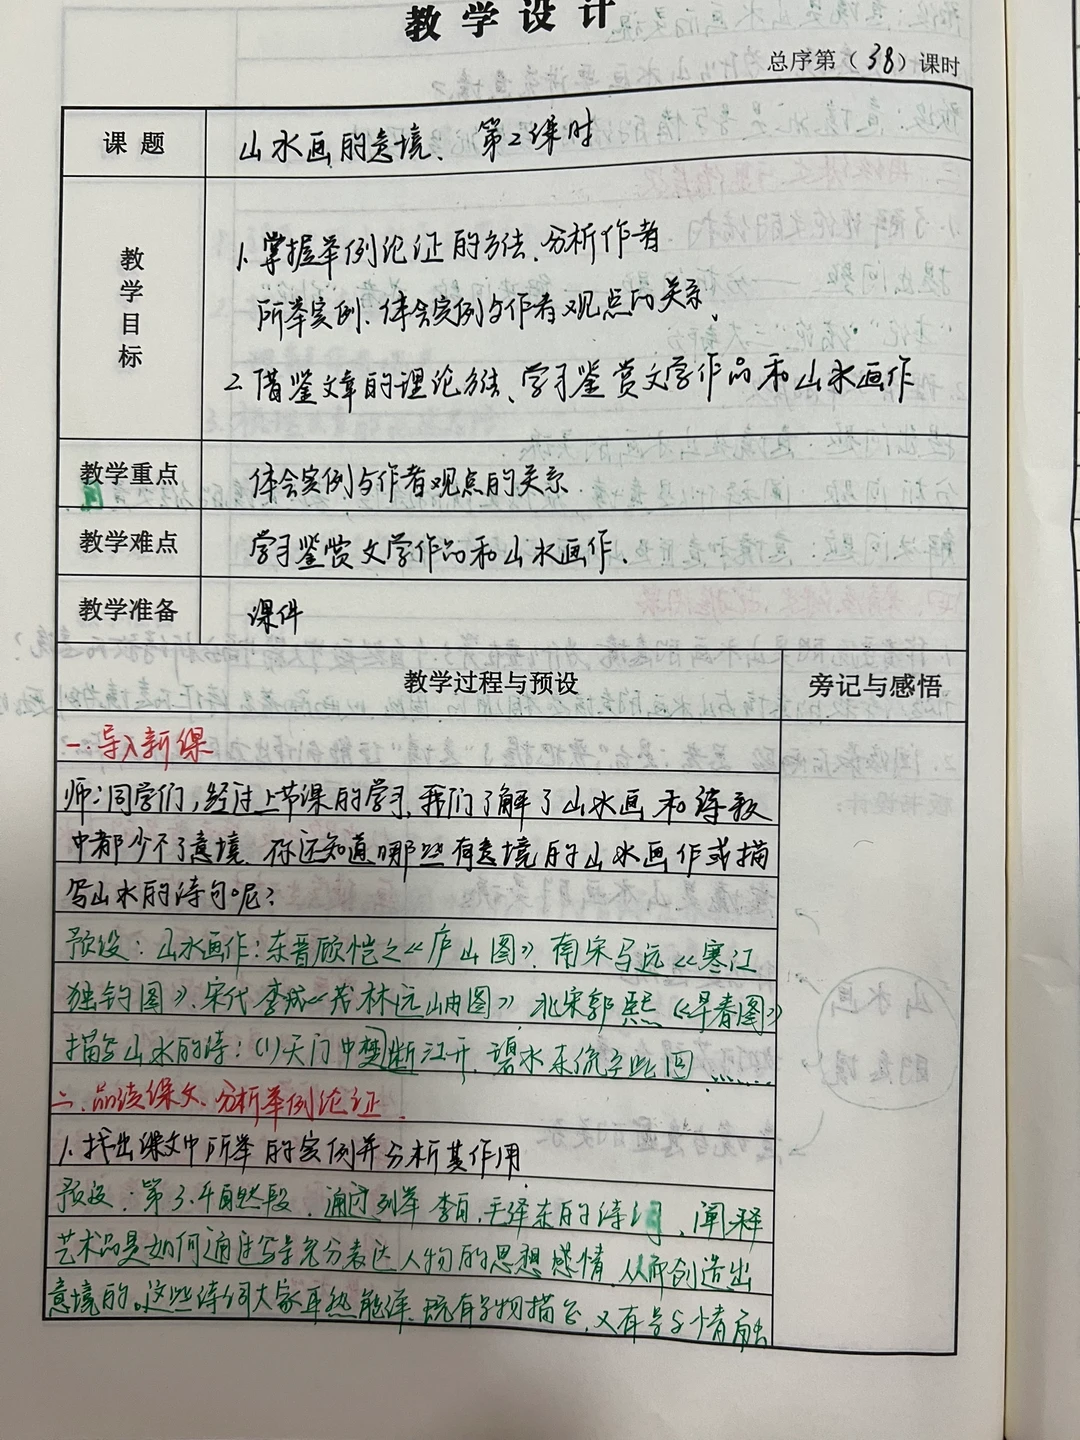 教学设计
总序第（38）课时
课题
山水画的意境、第2课时
教学目标
1.掌握举例论证的方法、分析作者
所举实例、体会实例与作者观点的关系、
2.借鉴文章的理论方法、学习鉴赏文学作品和山水画作
教学重点
体会实例与作者观点的关系.
教学难点
学习鉴赏文学作品和山水画作.
教学准备
课件
教学过程与预设
旁记与感悟
一.导入新课
师:同学们,经过上节课的学习,我们了解了山水画和诗歌
中都少不了意境、你还知道哪些有意境的山水画作或描
写山水的诗句呢?
预设:山水画作:东晋顾恺之《庐山图》.南宋马远《寒江
独钓图》、宋代李成《茂林远岫图》北宋郭熙《早春图》
描写山水的诗:(1)天门中断楚江开、碧水东流至此回......
二、品读课文、分析举例论证.
1.找出课文中所举的实例并分析其作用
预设:第3.4自然段.通过列举李白、毛泽东的诗词、阐释
艺术品是如何通过写景充分表达人物的思想感情、从而创造出
意境的。这些诗词大家耳熟能详.既有景物描写、又有景与情融